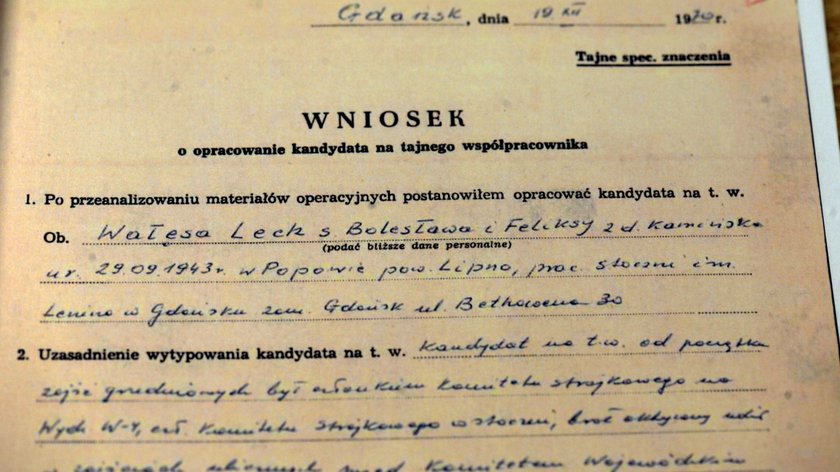 Gdańsk, dnia 19 XII 1970 r.
Tajne spec. znaczenia
WNIOSEK
o opracowanie kandydata na tajnego współpracownika
1. Po przeanalizowaniu materiałów operacyjnych postanowiłem opracować kandydata na t. w.
Ob. Wałęsa Lech s. Bolesława i Feliksy z d. Kamińska
(podać bliższe dane personalne)
ur. 29.09.1943 r. w Popowie pow. Lipno, prac. stoczni im.
Lenina w Gdańsku zam. Gdańsk ul. Bethowena 30
2. Uzasadnienie wytypowania kandydata na t. w. Kandydat na t.w. od początku
zajść grudniowych był członkiem Komitetu strajkowego na
Wydz W-4, czł. Komitetu Strajkowego w stoczni, brał aktywny udział
w zajściach ulicznych przed Komitetem Wojewódzkim